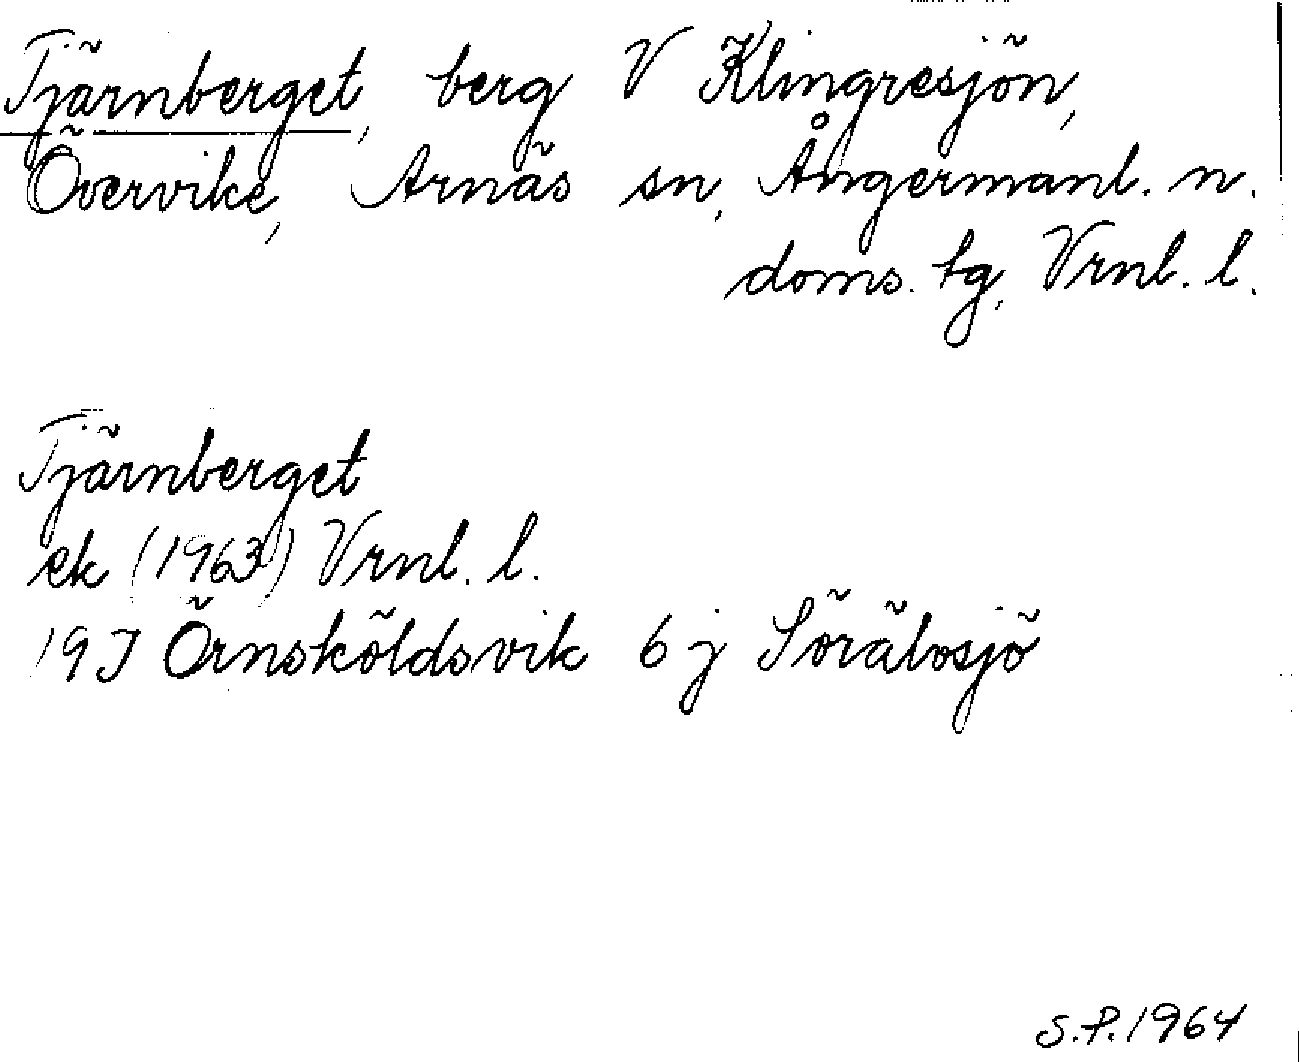 Tjärnberget, berg V Klingresjön,
Övervike, Arnäs sn, Ångermanl. n.
doms. tg, Vrnl. l.
Tjärnberget
ek (1963) Vrnl. l.
19J Örnsköldsvik 6 j Sörälvsjö
S.P. 1964